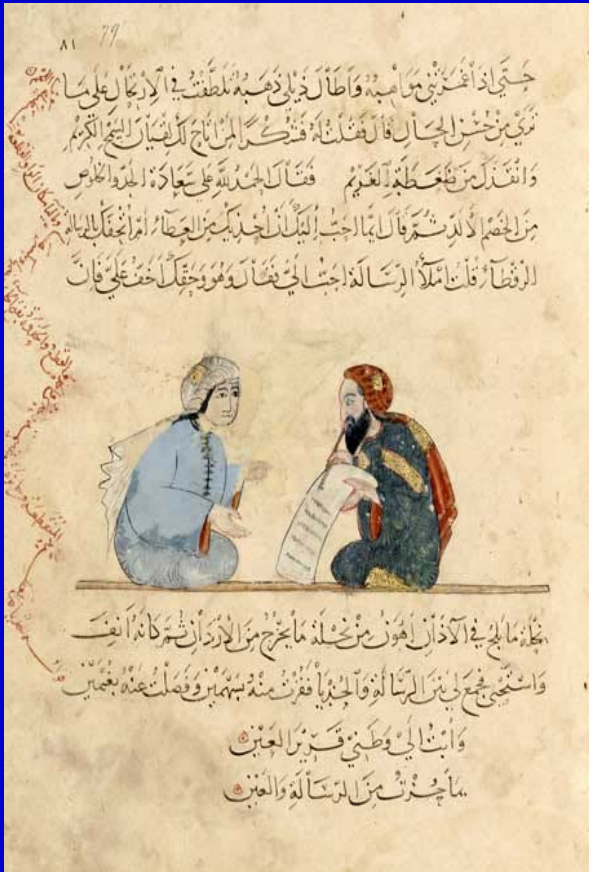 ٨١ 79
حَتَّى إِذَا غَمَرَتْنِي مَوَاهِبُهُ وَأَطَالَ ذَيْلِي ذَهَبُهُ تَلَطَّفْتُ فِي الِارْتِحَالِ عَلَى مَا
تَرَى مِنْ حُسْنِ الحَالِ قَالَ فَقُلْتُ لَهُ فَشُكْرًا لِمَنْ أَتَاحَ لَكَ لُقْيَانَ السَّمْحِ الكَرِيمِ
وَأَنْقَذَكَ مِنْ ضَغْطَةِ الغَرِيمِ فَقَالَ الحَمْدُ لِلَّهِ عَلَى سَعَادَةِ الجَدِّ وَالخُلُوصِ
مِنَ الخَصْمِ الأَلَدِّ ثُمَّ قَالَ أَيُّمَا أَحَبُّ إِلَيْكَ أَنْ أُحْذِيَكَ مِنَ العَطَاءِ أَمْ أُتْحِفَكَ بِالرِّسَالَةِ
الرَّقْطَاءِ قُلْتُ إِمْلَاءُ الرِّسَالَةِ أَحَبُّ إِلَيَّ فَقَالَ وَهُوَ وَحَقِّكَ أَخَفُّ عَلَيَّ فَإِنَّ
نِحْلَةَ مَا يَلِجُ فِي الآذَانِ أَهْوَنُ مِنْ نِحْلَةِ مَا يَخْرُجُ مِنَ الأَرْدَانِ ثُمَّ كَأَنَّهُ أَنِفَ
وَاسْتَحْيَى فَجَمَعَ لِي بَيْنَ الرِّسَالَةِ وَالحُذْيَا فَفُزْتُ مِنْهُ بِسَهْمَيْنِ وَفَصَلْتُ عَنْهُ بِغُنْمَيْنِ
وَأُبْتُ إِلَى وَطَنِي قَرِيرَ العَيْنِ
بِمَا حُزْتُ مِنَ الرِّسَالَةِ وَالعَيْنِ